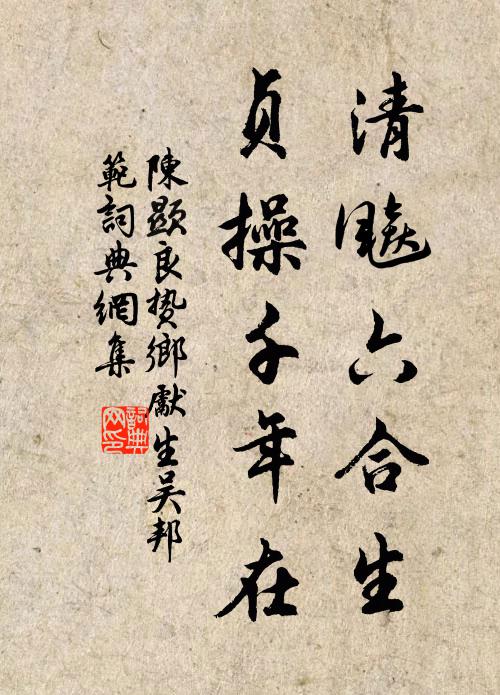 清飈六合生
貞操千年在
陳顯良贄鄉獻生吴邦
範詞典網集
詞典
网印